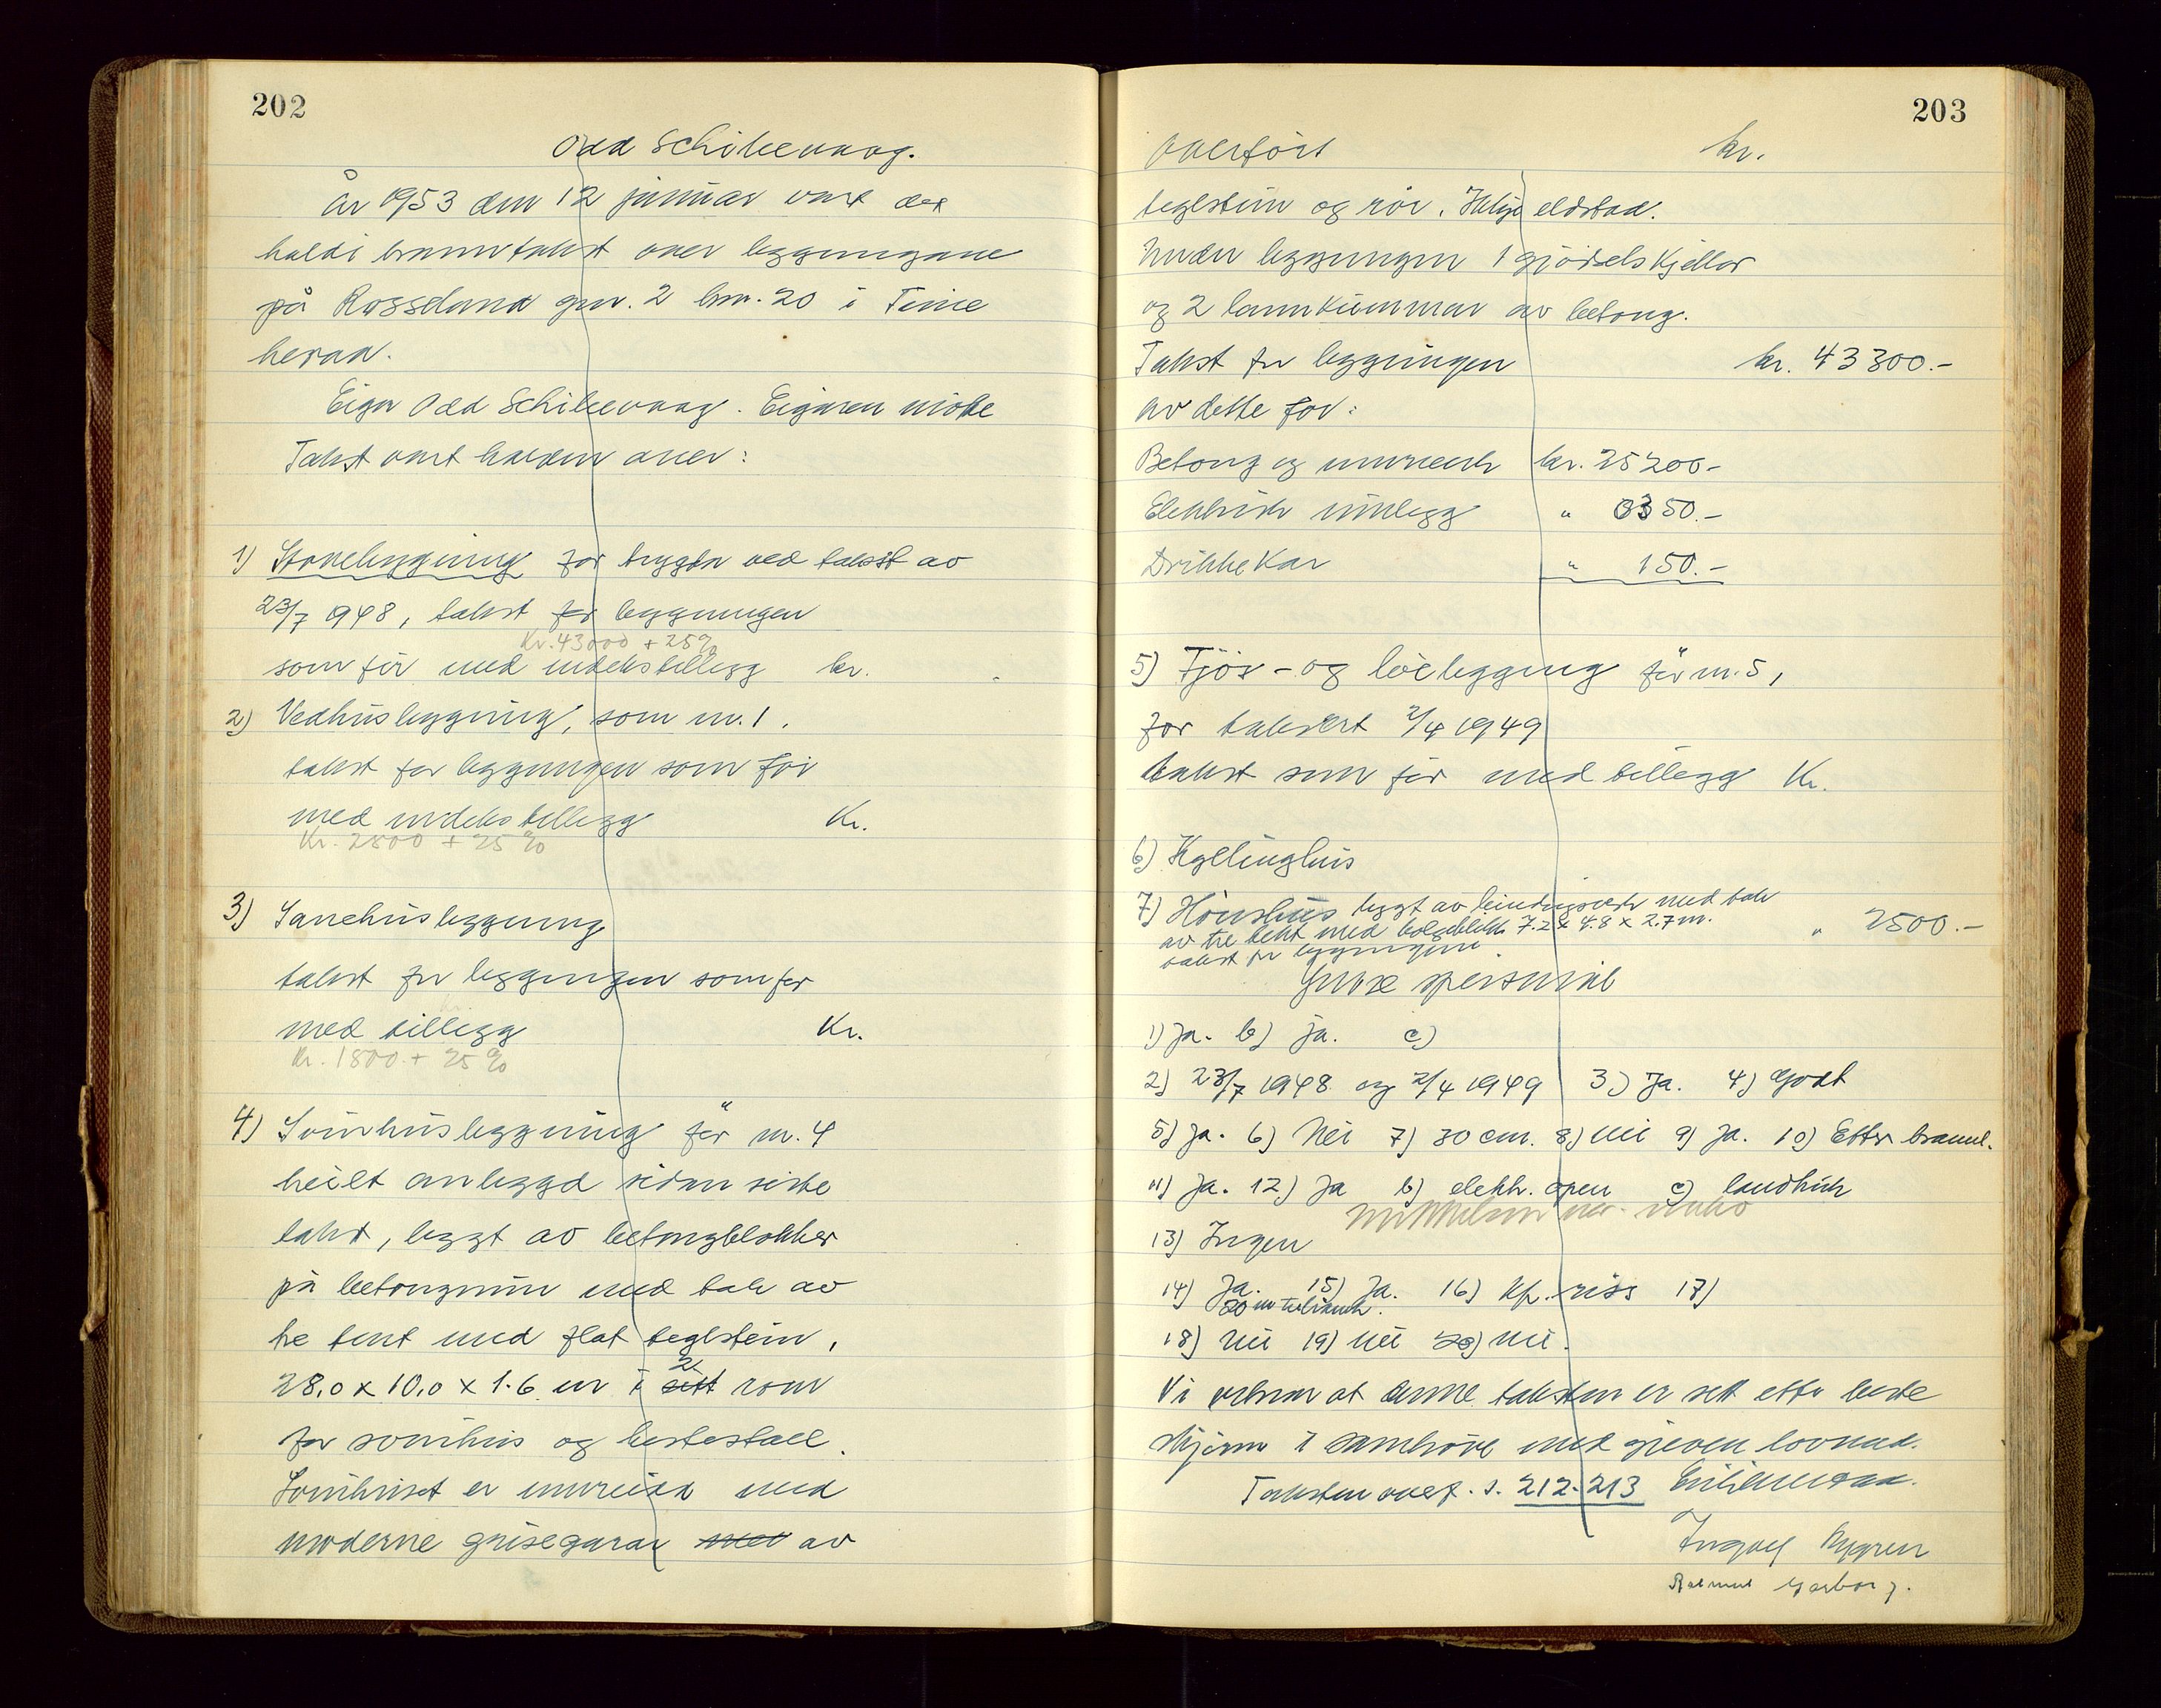 202
Odd Schikevaag.
År 1953 den 12 januar vart det
haldi branntakst over byggningane
på Rosseland gnr. 2 bnr. 20 i Time
herad.
Eigar Odd Schikevaag. Eigaren møtte
Takst vart halden over:
1) Stovebygning før trygda ved takst av
23/7 1948, takst for bygningen
Kr. 43000 + 25%
som før med indekstillegg kr.
2) Vedhusbygning, som nr. 1.
takst for bygningen som før
med indekstillegg Kr.
Kr. 2500 + 25%
3) Sauehusbygning
takst for bygningen som før
med tillegg Kr.
Kr. 1800.+ 25%
4) Svinhusbygning før nr. 4
heilt ombygd sidan siste
takst, bygt av betongblokker
på betongmur med tak av
tre tekt med flat teglstein,
28,0 x 10,0 x 1.6 m i 2 rom
for svinhus og hestestall.
Svinhuset er innreidd med
moderne grisegarar av
203
Overført kr.
teglstein og rør. Ikkje eldstad.
Under bygningen 1 gjødselskjellar
og 2 landkummar av betong.
Takst for bygningen kr. 43300.-
av dette for:
Betong og murverk kr. 25200-
Elektrisk innlegg " 3350.-
Drikkekar " 150.-
5) Fjøs- og løebygging før nr. 5,
før taksert 2/4 1949
takst som før med tillegg Kr.
6) Kyllinghus
7) Hønshus bygt av bindingsverk med tak
av tre tekt med bølgeblikk 7.2 x 4.8 x 2.7 m.
takst for bygningen " 2500.-
Ymse spersmål
1) Ja. b) ja. c)
2) 23/7 1948 og 2/4 1949 3) Ja. 4) Godt
5) Ja. 6) Nei 7) 30 cm. 8) Nei 9) Ja. 10) Etter brannl.
11) Ja. 12) Ja b) elekh. open c) landbruk
13) Ingen
14) Ja. 15) Ja. 16) Kfr. riss 17)
18) Nei 19) Nei 20) Nei.
Vi vitnar at denne taksten er sett etter beste
skjønn i samhøve med gjeven lovnad.
Taksten overf. s. 212-213
Ingolf Nygren
Rasmus Garborg.